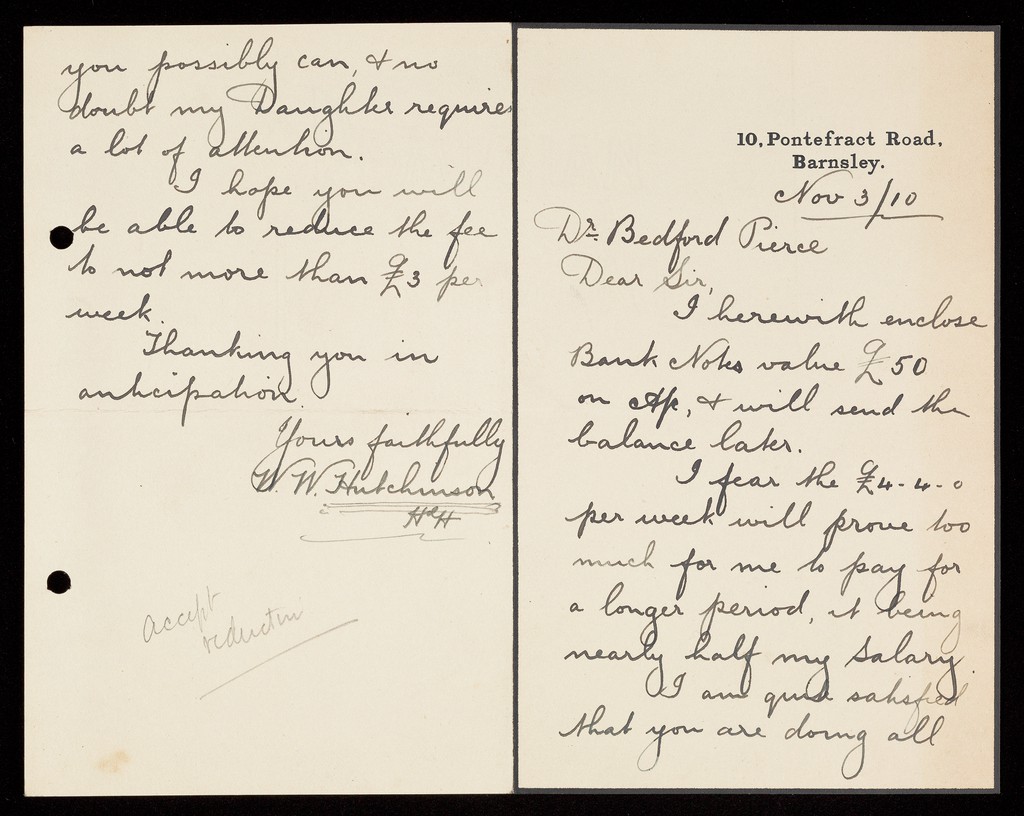 10, Pontefract Road,
Barnsley.
Nov 3/10
Dr. Bedford Pierce
Dear Sir,
I herewith enclose
Bank Notes value £50
on a/c, & will send the
balance later.
I fear the £4-4-0
per week will prove too
much for me to pay for
a longer period, it being
nearly half my salary.
I am quite satisfied
that you are doing all
you possibly can, & no
doubt my Daughter requires
a lot of attention.
I hope you will
be able to reduce the fee
to not more than £3 per
week.
Thanking you in
anticipation.
Yours faithfully
W. W. Hutchinson
accept
reduction